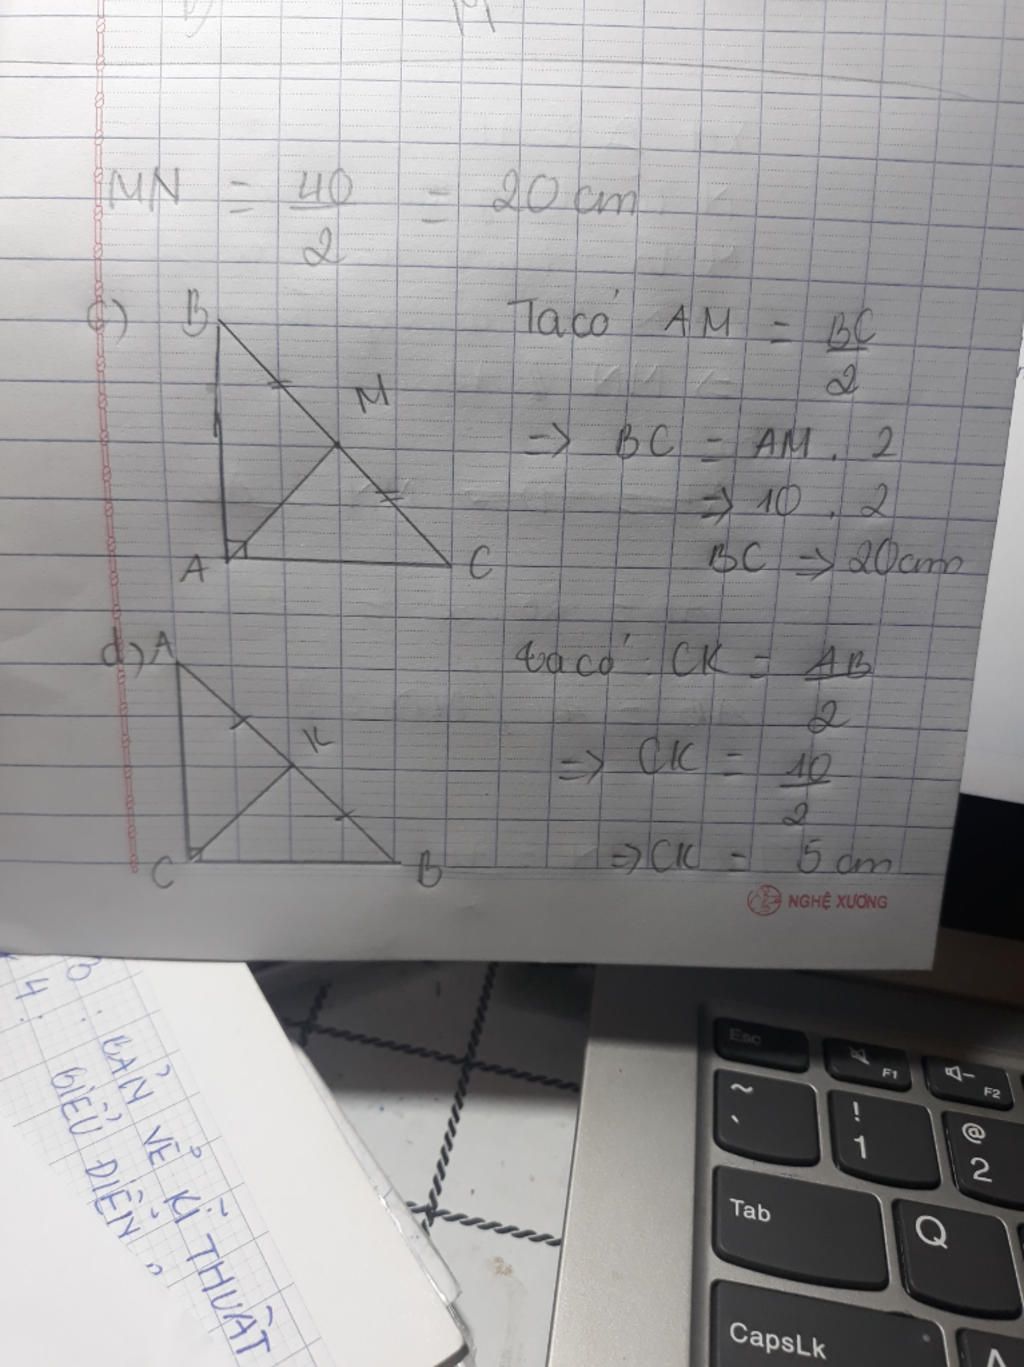 MN = 40/2 = 20 cm
c) B M A C
Ta có AM = BC/2
=> BC = AM . 2
=> 10 . 2
BC => 20cm
d) A K C B
ta có: CK = AB/2
=> CK = 10/2
=> CK = 5 cm
NGHỆ XƯƠNG
4:
BẢN VẼ KĨ THUẬT
BIỂU DIỄN
Esc
F1
F2
~ `
! 1
@ 2
Tab
Q
CapsLk
A